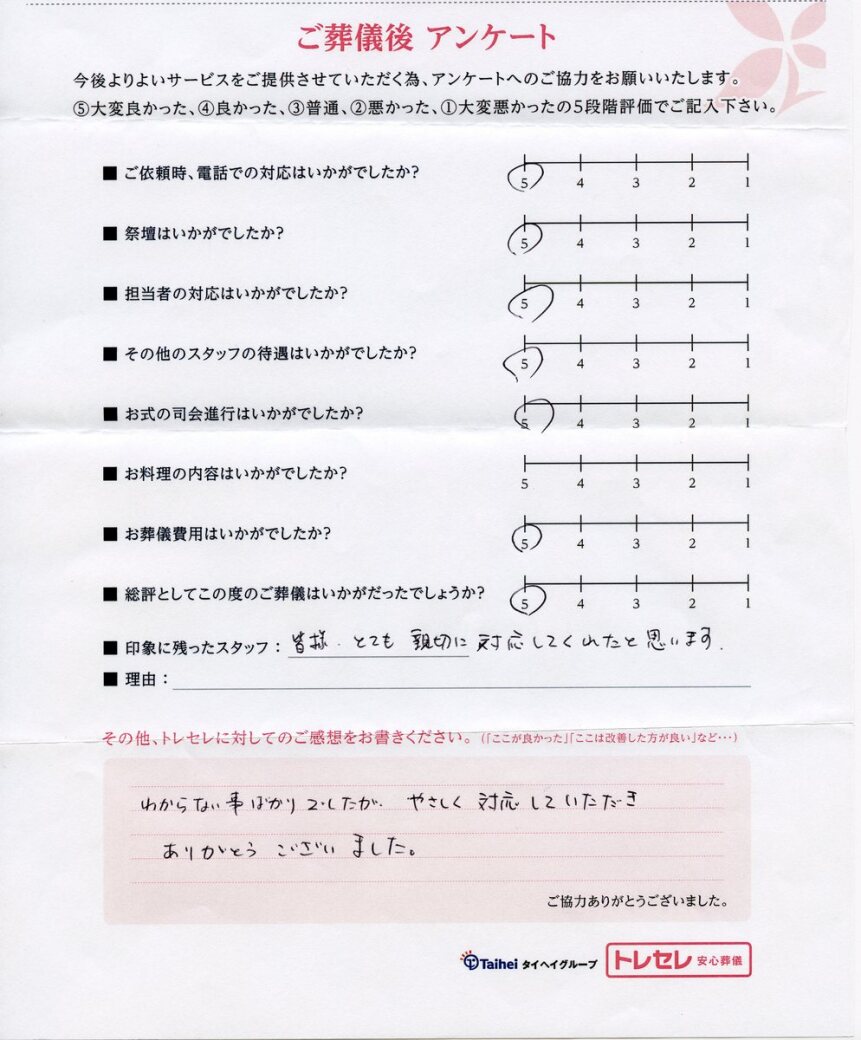 ご葬儀後 アンケート
今後よりよいサービスをご提供させていただく為、アンケートへのご協力をお願いいたします。
⑤大変良かった、④良かった、③普通、②悪かった、①大変悪かったの5段階評価でご記入下さい。
■ ご依頼時、電話での対応はいかがでしたか?
5 4 3 2 1
■ 祭壇はいかがでしたか?
5 4 3 2 1
■ 担当者の対応はいかがでしたか?
5 4 3 2 1
■ その他のスタッフの待遇はいかがでしたか?
5 4 3 2 1
■ お式の司会進行はいかがでしたか?
5 4 3 2 1
■ お料理の内容はいかがでしたか?
5 4 3 2 1
■ お葬儀費用はいかがでしたか?
5 4 3 2 1
■ 総評としてこの度のご葬儀はいかがだったでしょうか?
5 4 3 2 1
■ 印象に残ったスタッフ：皆様. とても 親切に 対応してくれたと思います.
■ 理由：
その他、トレセレに対してのご感想をお書きください。(「ここが良かった」「ここは改善した方が良い」など…)
わからない事ばかりでしたが. やさしく 対応していただき
ありがとう ございました。
ご協力ありがとうございました。
Taihei タイヘイグループ トレセレ 安心葬儀